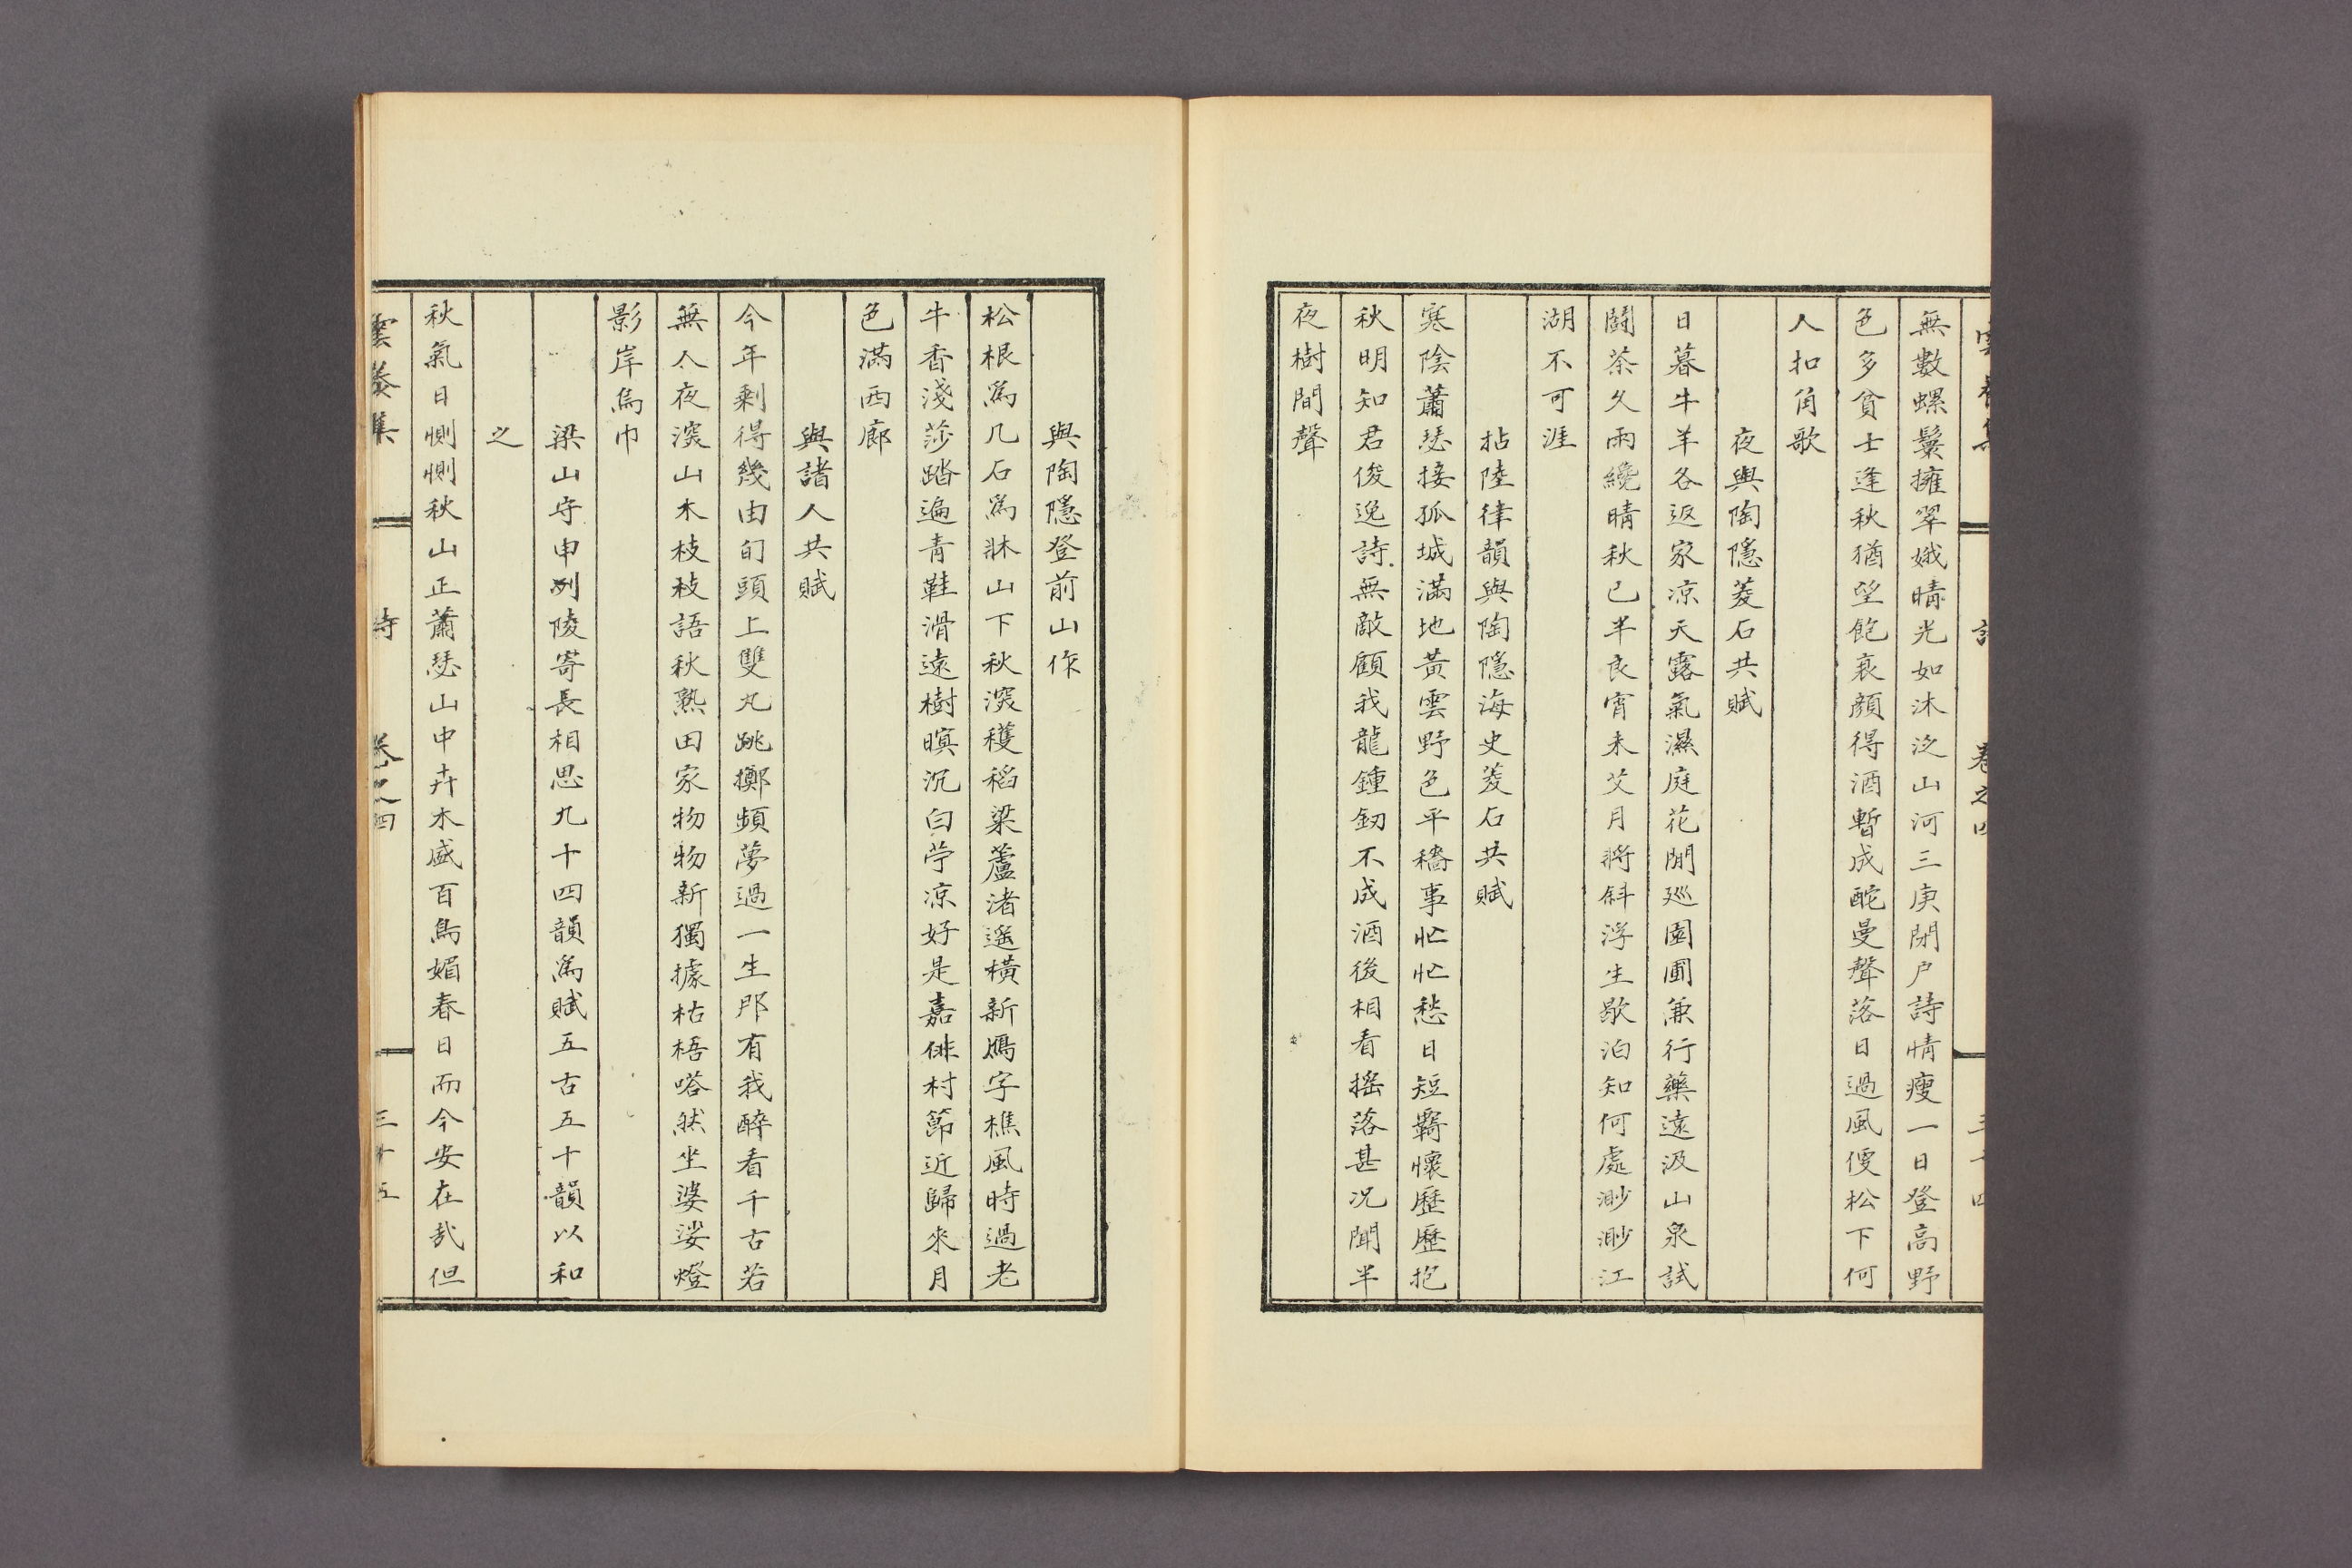 無數螺鬟擁翠娥晴光如沐泛山河三庚閉户詩情瘦一日登高野
色多貧士逢秋猶望飽衰顔得酒暫成酡曼聲落日過風便松下何
人扣角歌
夜與陶隱菱石共賦
日暮牛羊各返家凉天露氣濕庭花閒巡園圃兼行藥遠汲山泉試
鬪茶久雨纔晴秋已半良宵未艾月將斜浮生歇泊知何處渺渺江
湖不可涯
拈陸律韻與陶隱海史菱石共賦
寒陰蕭瑟接孤城滿地黃雲野色平穡事忙忙愁日短羇懷歷歷抱
秋明知君俊逸詩無敵顧我龍鍾釼不成酒後相看搖落甚况聞半
夜樹間聲
與陶隱登前山作
松根爲几石爲牀山下秋深穫稻粱蘆渚遥橫新鴈字樵風時過老
牛香淺莎踏遍青鞋滑遠樹暝沉白苧凉好是嘉俳村節近歸來月
色滿西廊
與諸人共賦
今年剩得幾由旬頭上雙丸跳擲頻夢過一生那有我醉看千古若
無人夜深山木枝枝語秋熟田家物物新獨據枯梧嗒然坐婆娑燈
影岸烏巾
梁山守申冽陵寄長相思九十四韻爲賦五古五十韻以和
之
秋氣日惻惻秋山正蕭瑟山中卉木盛百鳥媚春日而今安在哉但
雲養集 詩 卷之四 三十五